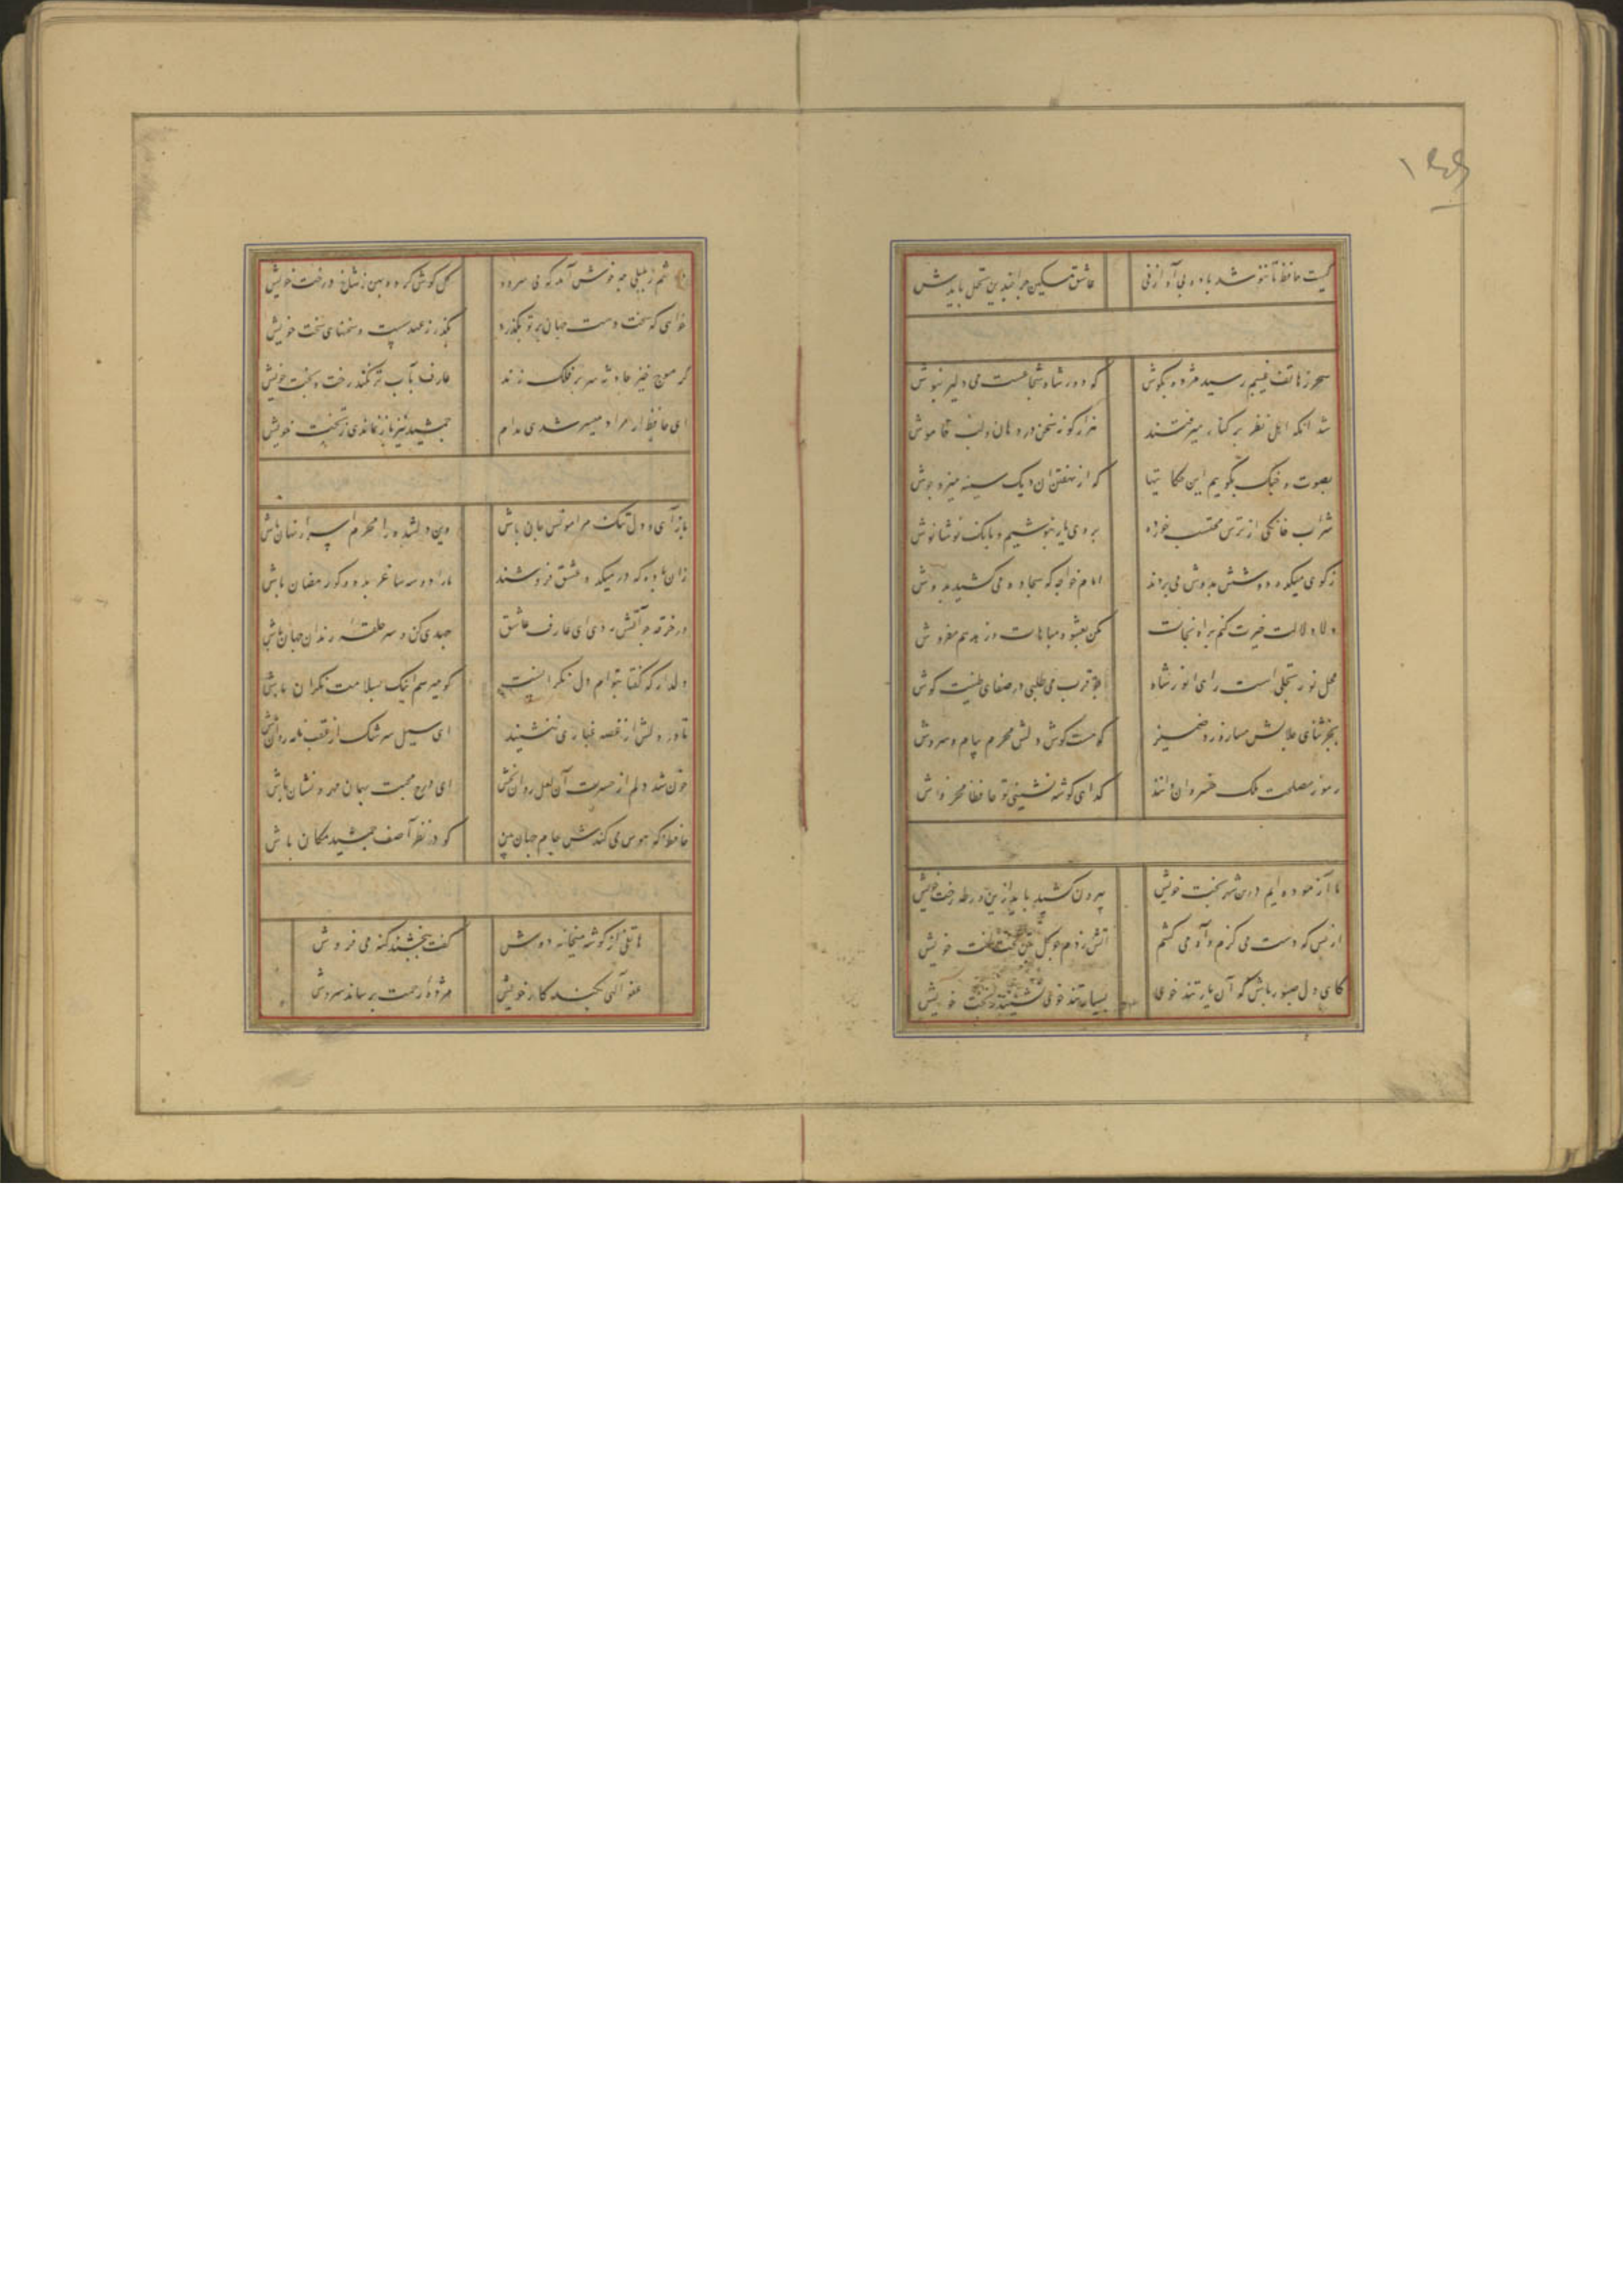 کیست حافظ تا ننوشد باده بی آواز نی	عاشق مسکین چرا چندین تحمل بایدش
سحر ز هاتف غیبم رسید مژده بگوش	که دور شاه شجاعست می دلیر بنوش
شد آنکه اهل نظر بر کناره میرفتند	هزار گونه سخن در دهان و لب خاموش
بصوت چنگ بگوییم این حکایتها	که از نهفتن آن دیگ سینه میزد جوش
شراب خانگی از ترس محتسب خورده	بروی یار بنوشیم و بانگ نوشانوش
ز کوی میکده دوشش بدوش می بردند	امام خواجه که سجاده می کشید بدوش
دلا دلالت خیرت کنم براه نجات	مکن بفسق مباهات و زهد هم مفروش
محل نور تجلی است رای انور شاه	چو قرب می طلبی در صفای نیت کوش
بجز ثنای جلالش مساز ورد ضمیر	که هست گوش دلش محرم پیام سروش
رموز مصلحت ملک خسروان دانند	گدای گوشه نشینی تو حافظا مخروش
ما آزموده ایم درین شهر بخت خویش	بیرون کشید باید ازین ورطه رخت خویش
از بس که دست می گزم و آه می کشم	آتش زدم چو گل بتن لخت لخت خویش
کای دل صبور باش که آن یار تند خوی	بسیار تند خوی نشیند ز بخت خویش
دوشم ز بلبلی چه خوش آمد که می سرود	گل گوش کرده بین ز شاخ درخت خویش
خواهی که سخت و سست جهان بر تو بگذرد	بگذر ز عهد سست و سخنهای سخت خویش
گر موج خیز حادثه سر بر فلک زند	عارف بآب تر نکند رخت و بخت خویش
ای حافظ ار مراد میسر شدی مدام	جمشید نیز باز نماندی ز تخت خویش
باز آی و دل تنگ مرا مونس جان باش	وین دلشده را محرم اسرار نهان باش
زان باده که در میکده عشق فروشند	ما را دو سه ساغر بده و گو رمضان باش
در خرقه چو آتش زدی ای عارف عاشق	جهدی کن و سر حلقه رندان جهان باش
دلدار که گفتا بتوام دل نگرانست	گو میرسم اینک بسلامت نگران باش
تا در دلش از غصه غباری ننشیند	ای سیل سرشک از عقب نامه روان باش
خون شد دلم از حسرت آن لعل روان بخش	ای درج محبت بهمان مهر و نشان باش
حافظ که هوس می کندش جام جهان بین	گو در نظر آصف جمشید مکان باش
هاتفی از گوشه میخانه دوش	گفت ببخشند گنه می فروش
عفو الهی بکند کار خویش	مژده رحمت برساند سروش